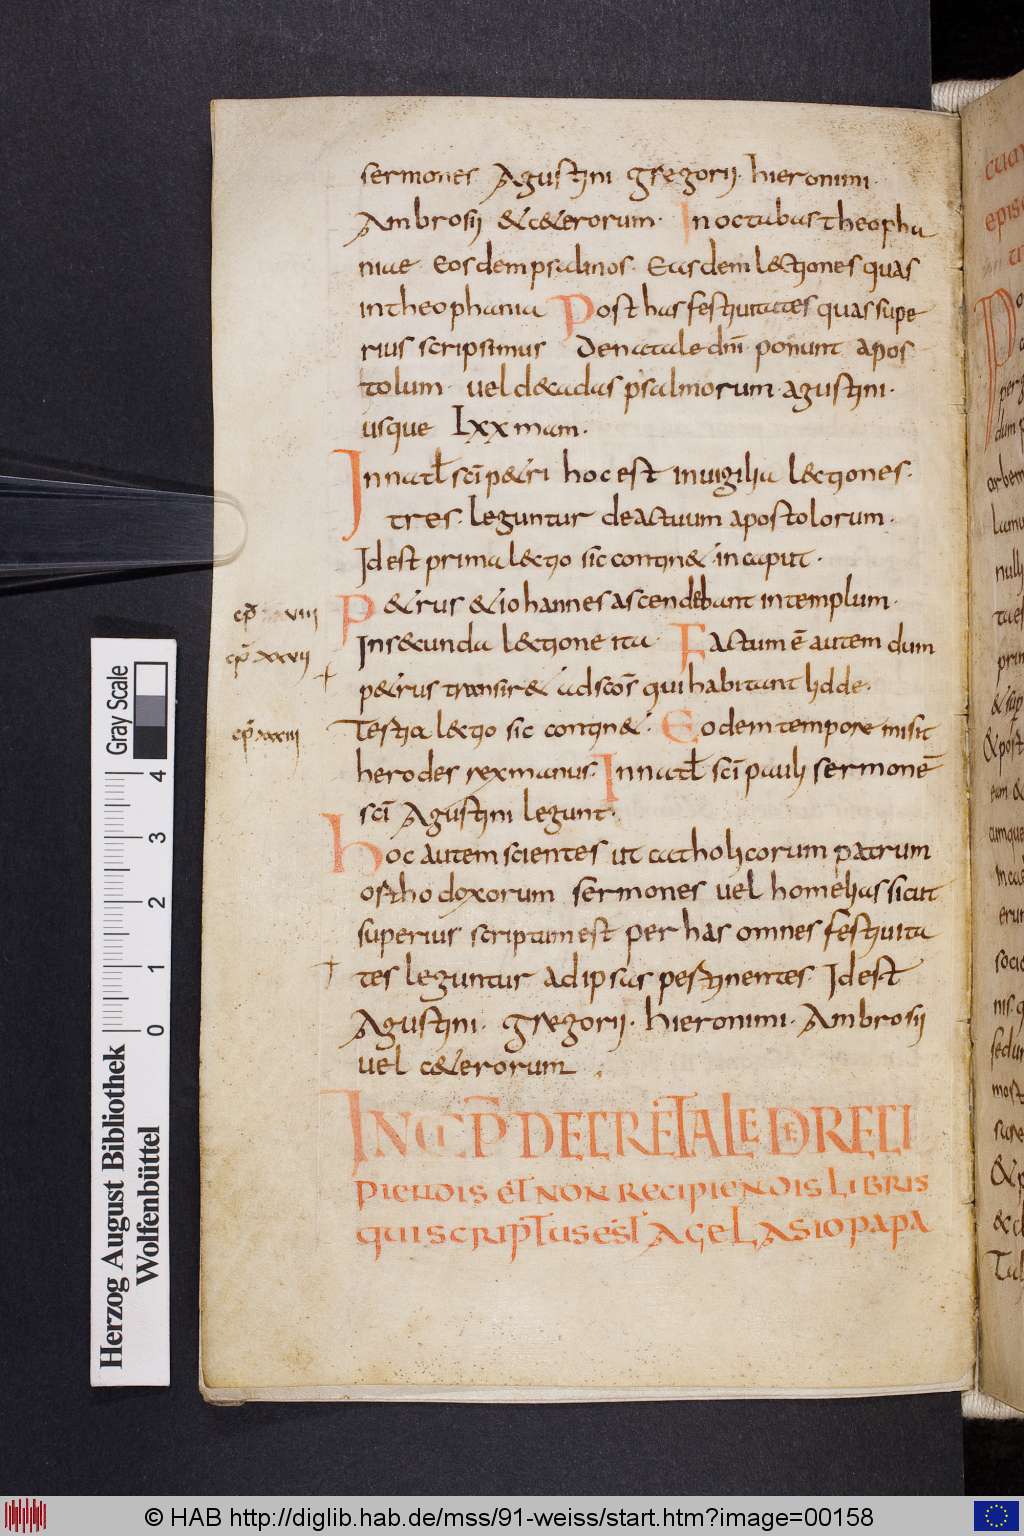 sermones Agustini gregorii. hieronimi.
Ambrosii &c&erorum. In octabas theopha
niae. Eosdem psalmos. Easdem l&ctiones quas
in theophania Post has festiuitates quas supe
rius scripsimus De natale dn̄i ponunt apos
tolum. uel d&cadas psalmorum agustini.
usque Lxxmam.
In nat̄l sc̄i p&ri hoc est in uigilia l&ctiones.
tres. leguntur de actuum apostolorum.
Id est prima l&ctio sic contin& in caput.
P&rus & iohannes ascendebant in templum.
In s&cunda l&ctione ita. Factum ē autem dum
p&rus transir& ad sc̄os qui habitant lidde.
Testia l&ctio sic contin&. Eodem tempore misit
herodes rex manus. In nat̄l sc̄i pauli sermonē
sc̄i Agustini legunt.
Hoc autem scientes ut catholicorum patrum
orthodoxorum sermones uel homelias sicut
superius scriptum est per has omnes festiuita
tes leguntur ad ipsas pestinentes Id est
Agustini. gregorii. hieronimi. Ambrosii
uel c&erorum.
INCĪP DECRETALE DE RECI
PIENDIS ET NON RECIPIENDIS LIBRIS
QUI SCRIPTUS EST A GELASIO PAPA
cp̄ xxvii
cp̄ xxxiii
cuq
epis
perg
dum p
arbem
lumi
null
taes
prim
& sup
& post
eam &
cumque
In cae
erun
socio
nis. q
sedun
most
supe
& p
& d
Tal
Gray Scale
4 3 2 1 0
Herzog August Bibliothek
Wolfenbüttel
© HAB http://diglib.hab.de/mss/91-weiss/start.htm?image=00158